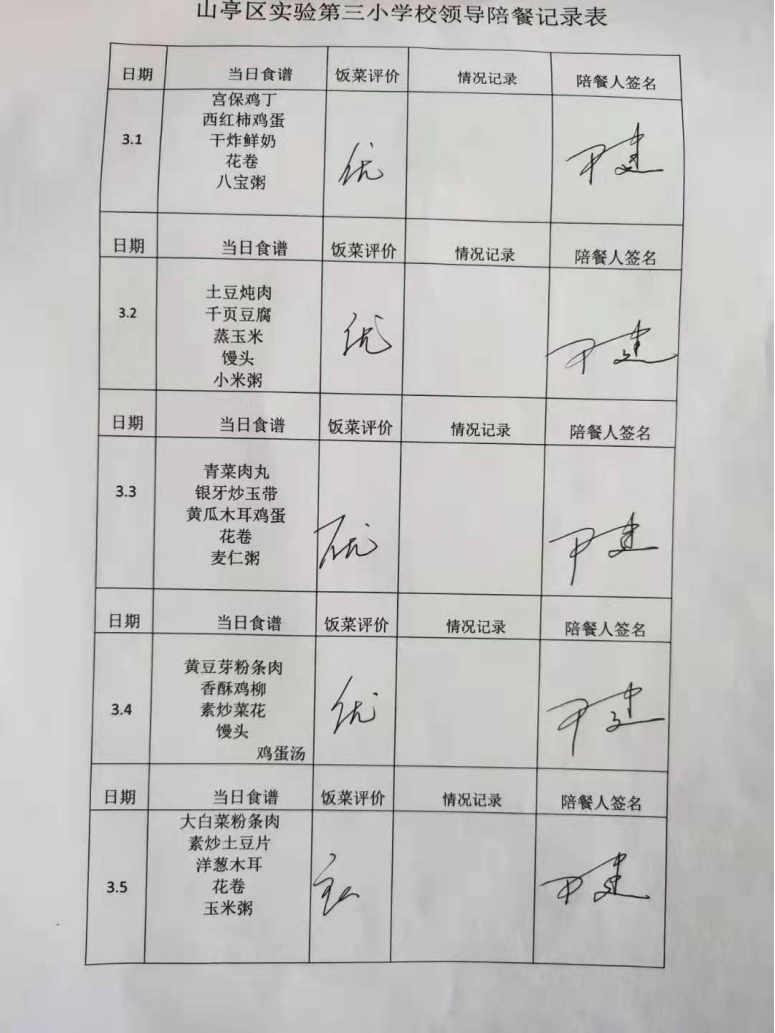 山亭区实验第三小学校领导陪餐记录表
日期 当日食谱 饭菜评价 情况记录 陪餐人签名
3.1
宫保鸡丁
西红柿鸡蛋
干炸鲜奶
花卷
八宝粥
优
日期 当日食谱 饭菜评价 情况记录 陪餐人签名
3.2
土豆炖肉
千页豆腐
蒸玉米
馒头
小米粥
优
日期 当日食谱 饭菜评价 情况记录 陪餐人签名
3.3
青菜肉丸
银牙炒玉带
黄瓜木耳鸡蛋
花卷
麦仁粥
优
日期 当日食谱 饭菜评价 情况记录 陪餐人签名
3.4
黄豆芽粉条肉
香酥鸡柳
素炒菜花
馒头
鸡蛋汤
优
日期 当日食谱 饭菜评价 情况记录 陪餐人签名
3.5
大白菜粉条肉
素炒土豆片
洋葱木耳
花卷
玉米粥